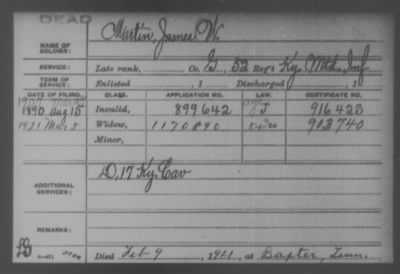 DEAD
NAME OF SOLDIER: Martin, James W.
SERVICE: Late rank, Co. G, 52 Reg't Ky. Mtd. Inf
TERM OF SERVICE: Enlisted 1 Discharged , 1
DATE OF FILING. CLASS. APPLICATION NO. LAW. CERTIFICATE NO.
1890 Aug 15 Invalid, 899642 J 916423
1921 Mar 5 Widow, 1170890 903740
Minor,
ADDITIONAL SERVICES: D, 17 Ky. Cav
REMARKS:
Died Feb 9, 1921, at Baxter, Tenn.